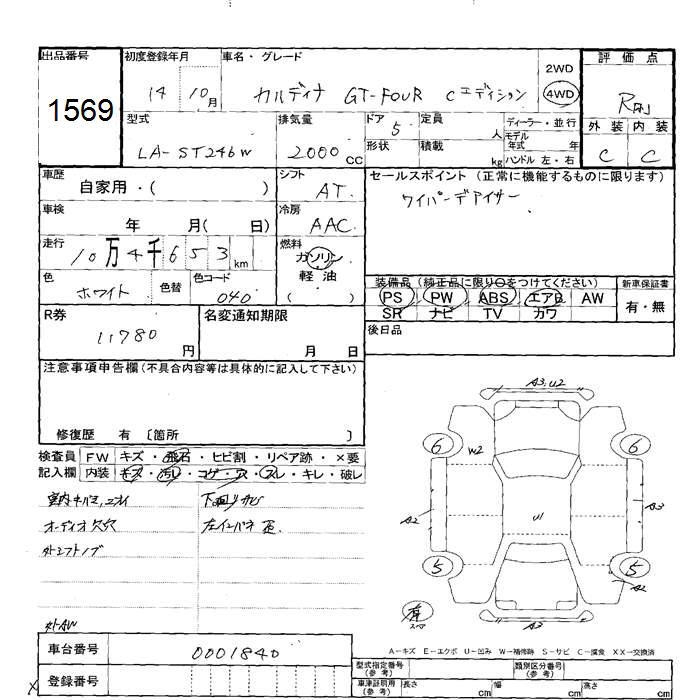 出品番号
1569
初度登録年月
14 10月
車名・グレード
カルディナ GT-FOUR Cエディション
2WD
4WD
評価点
外装 内装
C C
型式
LA-ST246W
排気量
2000cc
ドア 5
形状
定員 人
積載 kg
ディーラー・並行
モデル年式 年
ハンドル 左・右
車歴
自家用・( )
シフト
AT
車検
年 月( 日)
冷房
AAC
走行
10万4千653km
燃料
ガソリン
軽油
( )
色
ホワイト
色替
色コード
040
R券
11780円
名変通知期限
月 日
セールスポイント(正常に機能するものに限ります)
ワイパーデアイサー
装備品(純正品に限り○をつけてください)
PS PW ABS エアB AW
SR ナビ TV カワ
新車保証書
有・無
後日品
注意事項申告欄(不具合内容等は具体的に記入して下さい)
修復歴 有 〔箇所 〕
検査員記入欄
FW キズ・飛石・ヒビ割・リペア跡・×要
内装 キズ・汚レ・コゲ・穴・スレ・キレ・破レ
オーディオ欠穴
外シフトノブ
下廻りサビ
外AW
A3,U2
6 6
W2
A2
U1
A3
5 5
A2
A3
有
スペア
A-キズ E-エクボ U-凹み W-補修跡 S-サビ C-腐食 XX-交換済
車台番号
0001840
登録番号
型式指定番号(参考)
類別区分番号(参考)
車庫証明用(参考) 長さ cm 幅 cm 高さ cm